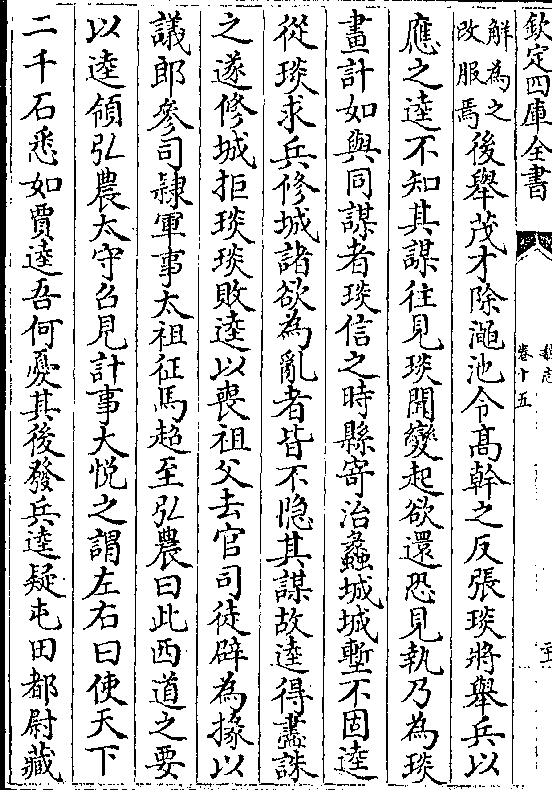 欽定四庫全書
魏志
卷十五
解為之
改服焉
後舉茂才除澠池令髙幹之反張琰將舉兵以
應之逵不知其謀往見琰聞變起欲還恐見執乃為琰
畫計如與同謀者琰信之時縣寄治蠡城城塹不固逵
從琰求兵修城諸欲為亂者皆不隠其謀故逵得盡誅
之遂修城拒琰琰敗逵以喪祖父去官司徒辟為掾以
議郎參司隸軍事太祖征馬超至弘農曰此西道之要
以逵領弘農太守召見計事大悅之謂左右曰使天下
二千石悉如賈逵吾何憂其後發兵逵疑屯田都尉藏